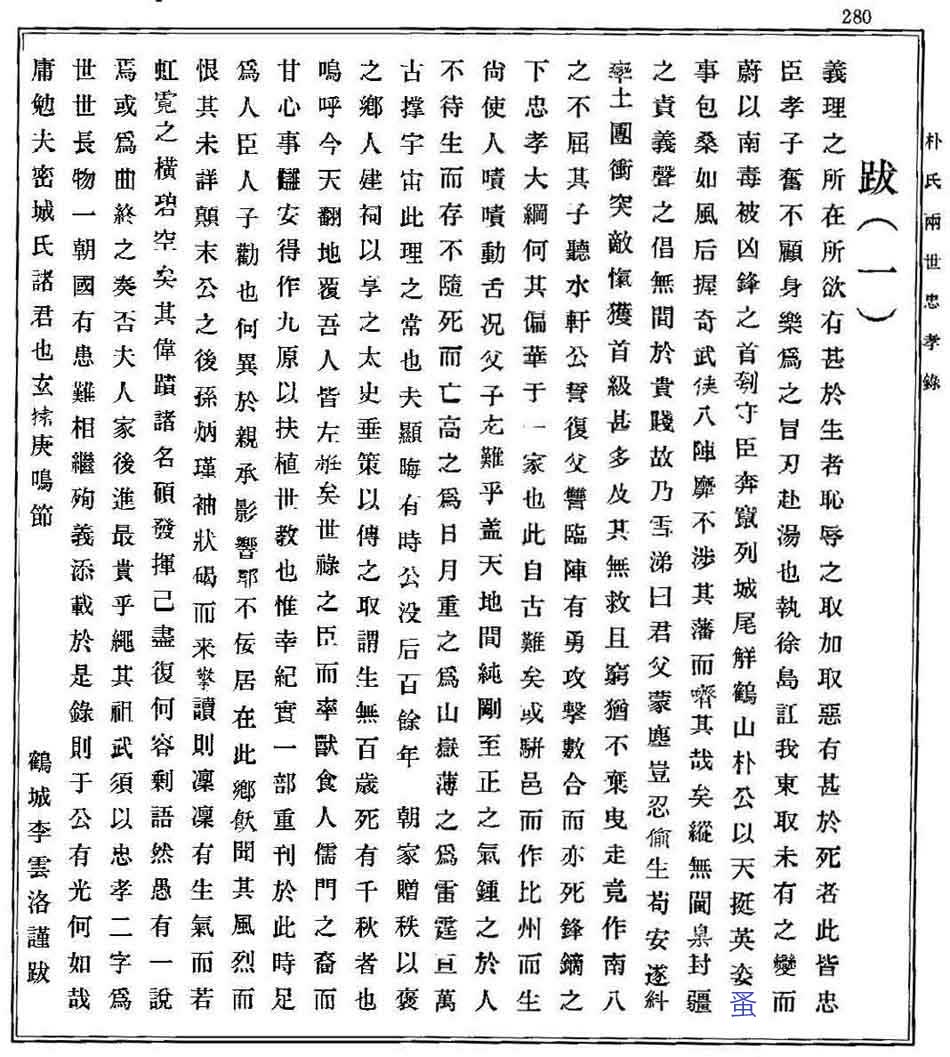 280
朴氏兩世忠孝錄
跋(一)
義理之所在所欲有甚於生者恥辱之取加取惡有甚於死者此皆忠
臣孝子奮不顧身樂爲之冒刃赴湯也執徐島訌我東取未有之變而
蔚以南毒被凶鋒之首刳守臣奔竄列城尾觧鶴山朴公以天挺英姿蚤
事包桑如風后握奇武侯八陣靡不涉其藩而嚌其哉矣縱無閫臬封疆
之責義聲之倡無間於貴賤故乃雪涕曰君父蒙塵豈忍偷生苟安遂糾
率土團衝突敵愾獲首級甚多及其無救且窮猶不棄曳走竟作南八
之不屈其子聽水軒公誓復父讐臨陣有勇攻擊數合而亦死鋒鏑之
下忠孝大綱何其偏華于一家也此自古難矣或騈邑而作比州而生
尙使人嘖嘖動舌况父子尤難乎盖天地間純剛至正之氣鍾之於人
不待生而存不隨死而亡高之爲日月重之爲山嶽薄之爲雷霆亘萬
古撑宇宙此理之常也夫顯晦有時公没后百餘年 朝家贈秩以褒
之鄉人建祠以享之太史垂策以傳之取謂生無百歲死有千秋者也
嗚呼今天翻地覆吾人皆左衽矣世祿之臣而率獸食人儒門之裔而
甘心事讎安得作九原以扶植世教也惟幸紀實一部重刊於此時足
爲人臣人子勸也何異於親承影響耶不佞居在此鄉飫聞其風烈而
恨其未詳顛末公之後孫炳瑾袖狀碣而来擎讀則凜凜有生氣而若
虹霓之橫碧空矣其偉蹟諸名碩發揮己盡復何容剩語然愚有一說
焉或爲曲終之奏否夫人家後進最貴乎繩其祖武須以忠孝二字爲
世世長物一朝國有患難相繼殉義添載於是錄則于公有光何如哉
庸勉夫密城氏諸君也玄㹥庚鳴節
鶴城李雲洛謹跋